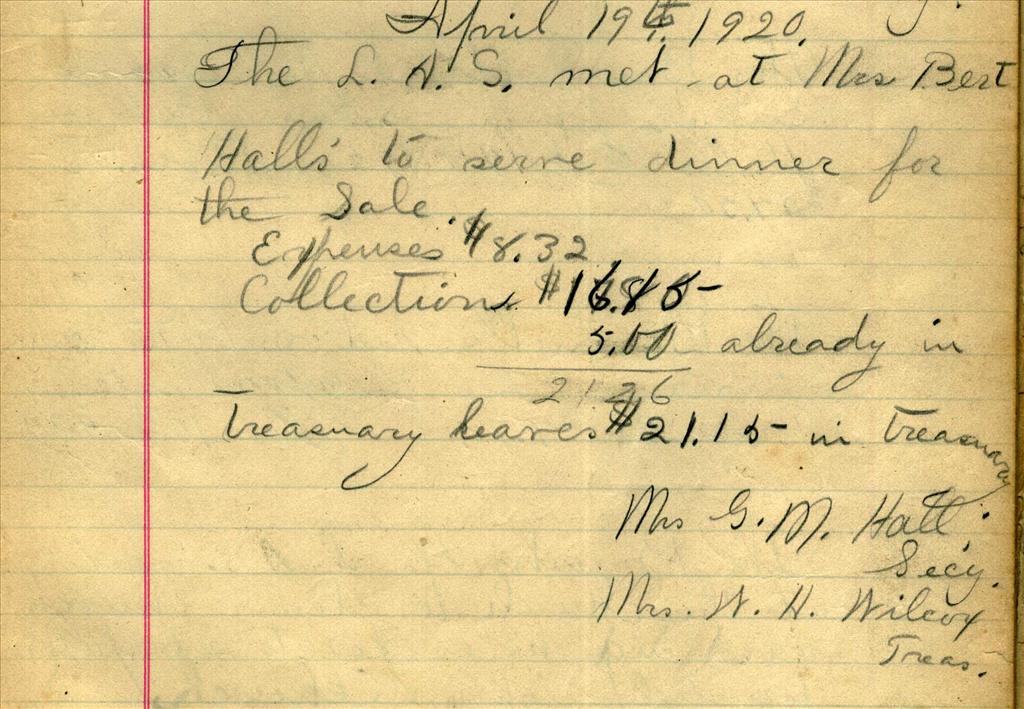 April 19th, 1920.
The L. A. S. met at Mrs Bert
Halls' to serve dinner for
the Sale.
Expenses $8.32
Collections $16.15
5.00 already in
2126
Treasuary leaves $21.15 in treasuary
Mrs G. M. Hall.
Sec'y.
Mrs. W. H. Wilcox
Treas.